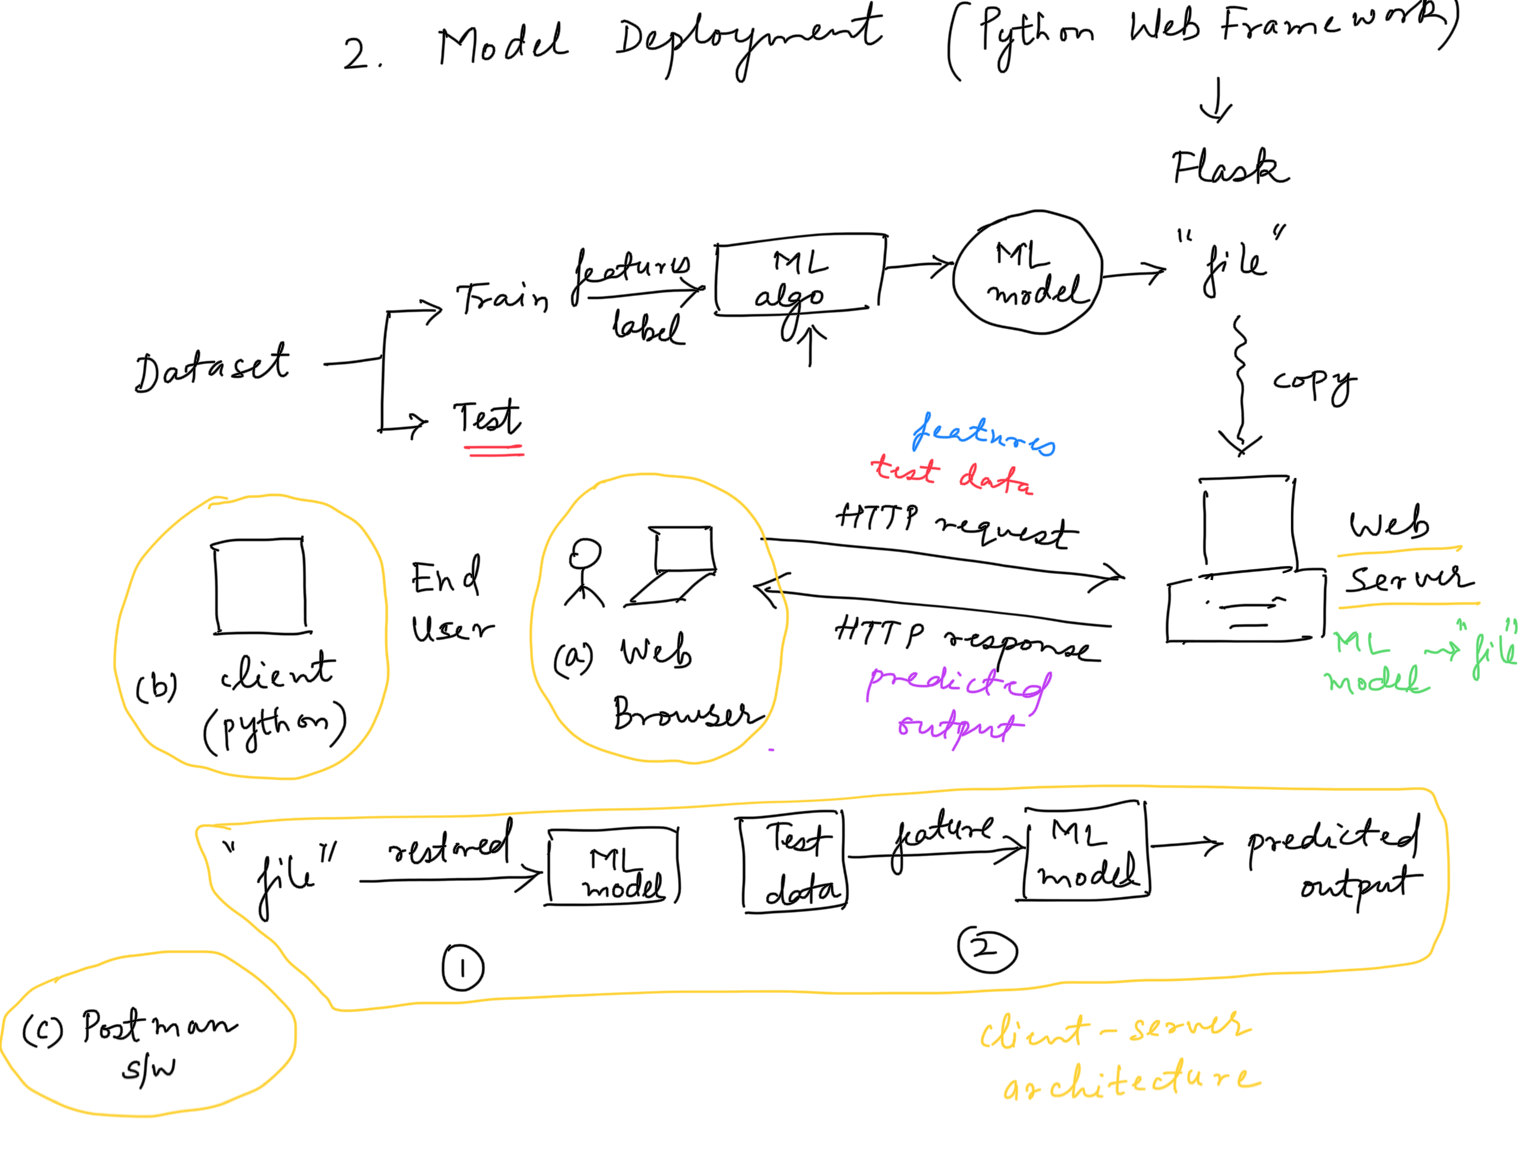 2. Model Deployment (Python Web Framework)
Flask
Dataset
Train
features
label
ML
algo
ML
model
"file"
copy
Test
features
test data
HTTP request
HTTP response
predicted
output
Web
Server
ML
model
"file"
End
User
(a) Web
Browser
(b) client
(python)
"file"
restored
ML
model
1
Test
data
feature
ML
model
predicted
output
2
(c) Postman
s/w
client-server
architecture